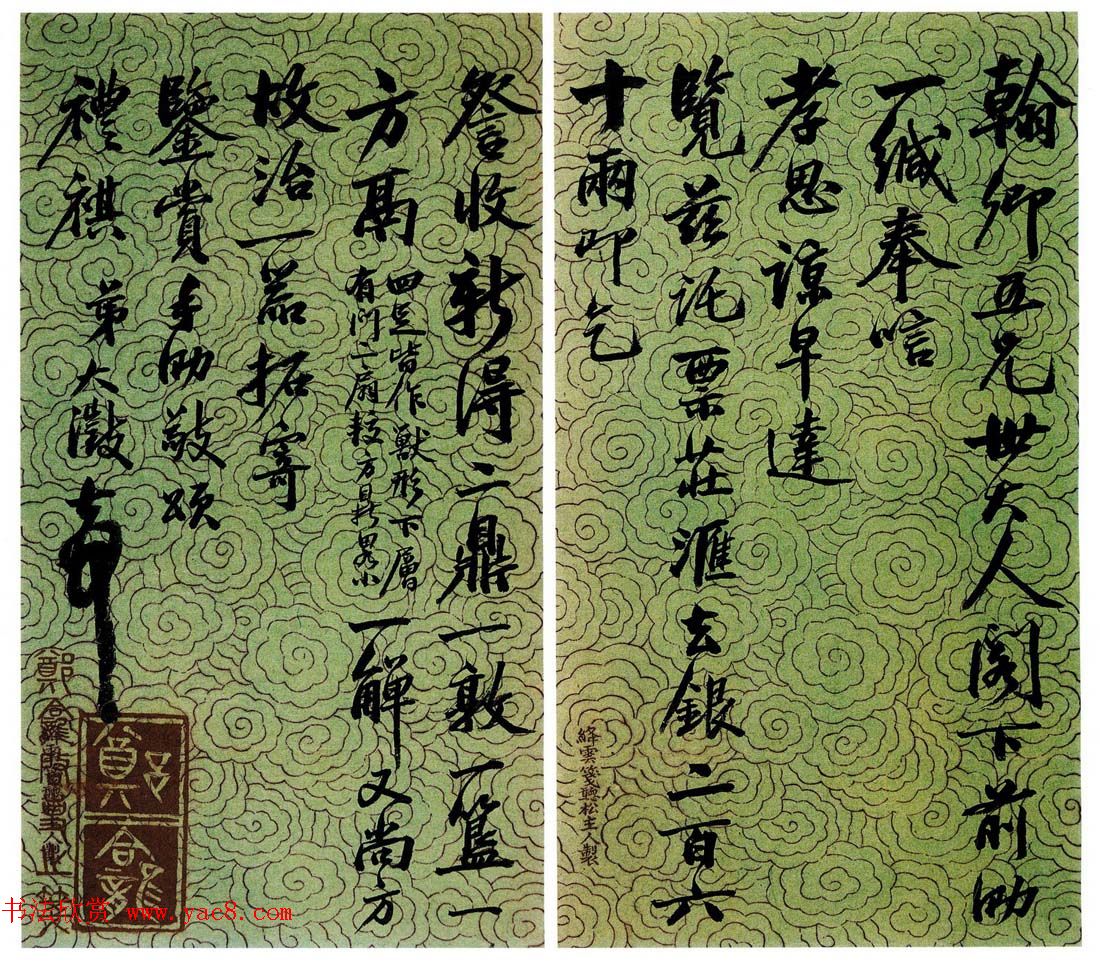 翰卿五兄世大人閣下前泐
一緘奉唁
孝思諒早達
覽茲託票莊滙去銀二百六
十兩即乞
詧收新得二鼎一敦一簋一
方鬲四足皆作獸形下層
有門二扇較方鼎畧小一觶又尚方
故治一器拓寄
鑒賞手泐敬頌
禮祺 弟大澂
絳雲箋 松主人製
書法欣賞 www.yac8.com